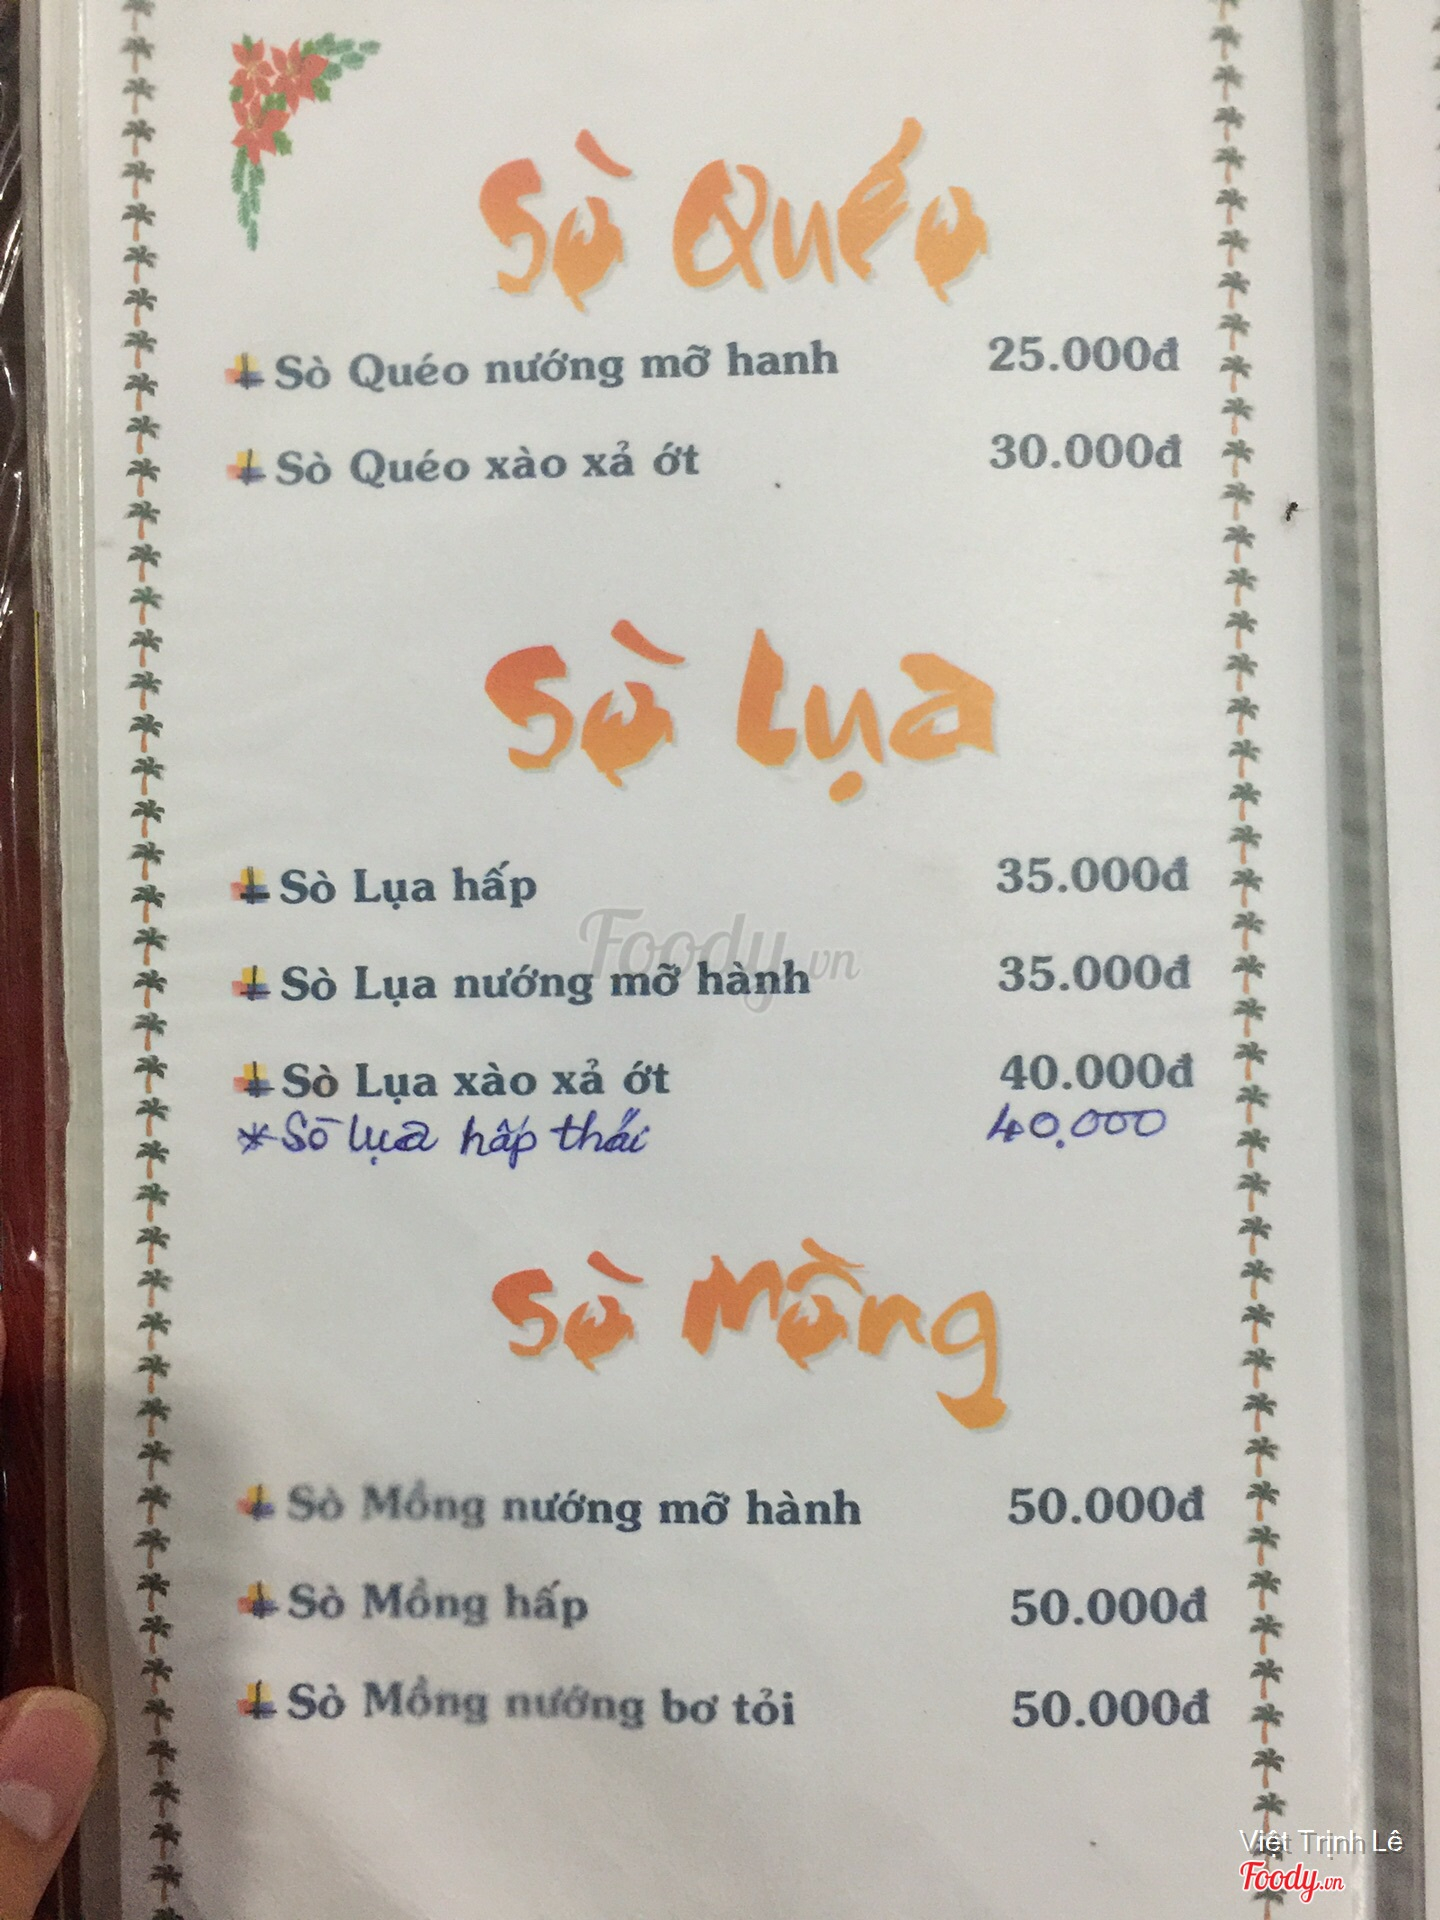 Sò Quéo
Sò Quéo nướng mỡ hanh 25.000đ
Sò Quéo xào xả ớt 30.000đ
Sò Lụa
Sò Lụa hấp 35.000đ
Foody.vn
Sò Lụa nướng mỡ hành 35.000đ
Sò Lụa xào xả ớt 40.000đ
* Sò lụa hấp thái 40.000
Sò Mồng
Sò Mồng nướng mỡ hành 50.000đ
Sò Mồng hấp 50.000đ
Sò Mồng nướng bơ tỏi 50.000đ
Việt Trịnh Lê
Foody.vn